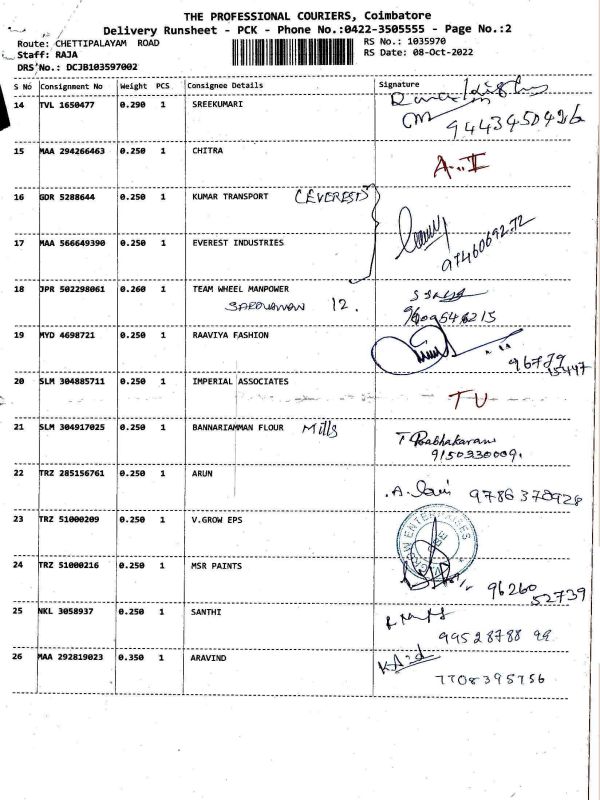 THE PROFESSIONAL COURIERS, Coimbatore
Delivery Runsheet - PCK - Phone No.:0422-3505555 - Page No.:2
Route: CHETTIPALAYAM ROAD
RS No.: 1035970
Staff: RAJA
RS Date: 08-Oct-2022
DRS No.: DCJB103597002
S No Consignment No Weight PCS Consignee Details Signature
14 TVL 1650477 0.290 1 SREEKUMARI
15 MAA 294266463 0.250 1 CHITRA
16 GDR 5288644 0.250 1 KUMAR TRANSPORT (EVEREST)
17 MAA 566649390 0.250 1 EVEREST INDUSTRIES
9746069272
18 JPR 502298061 0.260 1 TEAM WHEEL MANPOWER
12.
19 MYD 4698721 0.250 1 RAAVIYA FASHION
96779
15447
20 SLM 304885711 0.250 1 IMPERIAL ASSOCIATES
TU
21 SLM 304917025 0.250 1 BANNARIAMMAN FLOUR Mills
T Prabhakaran
9150330009.
22 TRZ 285156761 0.250 1 ARUN
9786370928
23 TRZ 51000209 0.250 1 V.GROW EPS
24 TRZ 51000216 0.250 1 MSR PAINTS
96260
52739
25 NKL 3058937 0.250 1 SANTHI
99528788 99
26 MAA 292819023 0.350 1 ARAVIND
7708395756